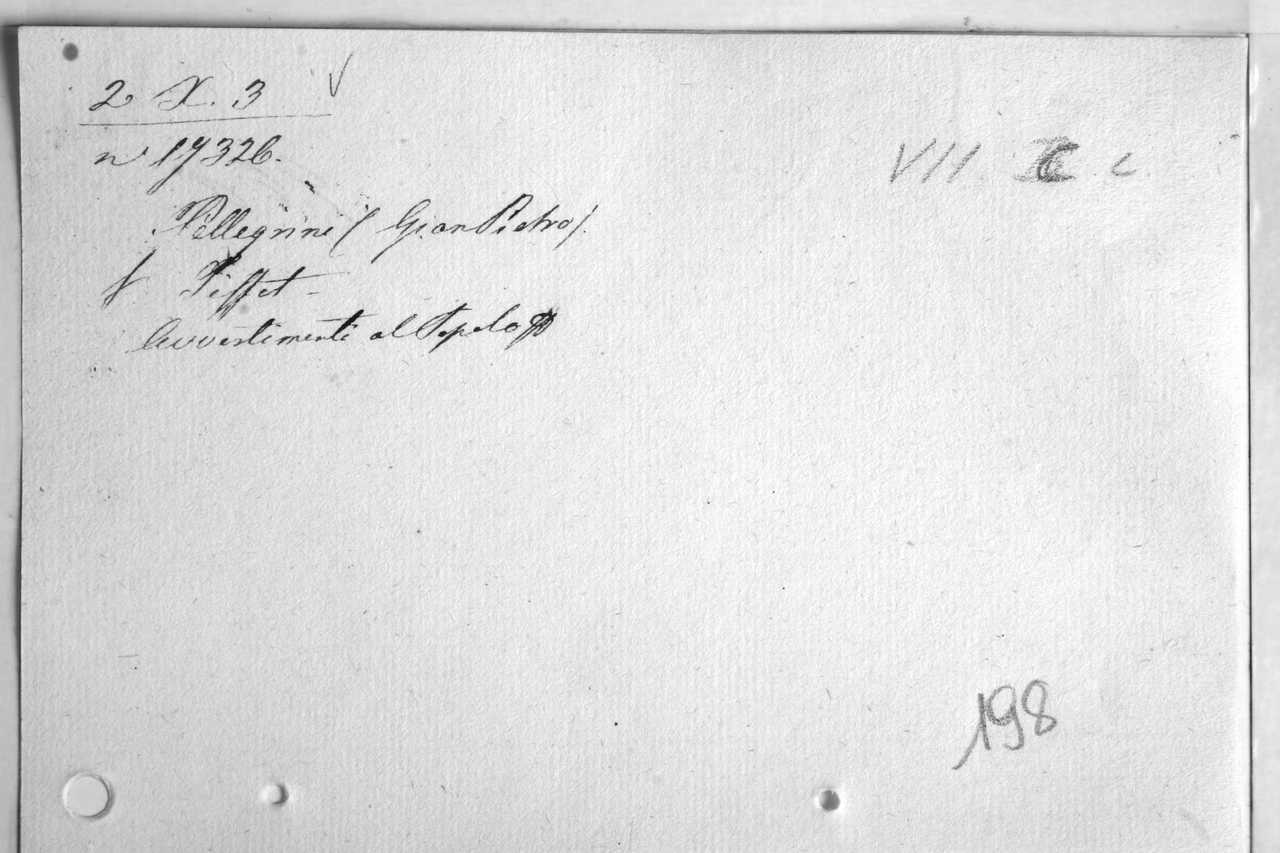 2 X. 3
VII. c
n 17326.
Pellegrini (Gian Pietro).
Avvertimenti al Popolo
198